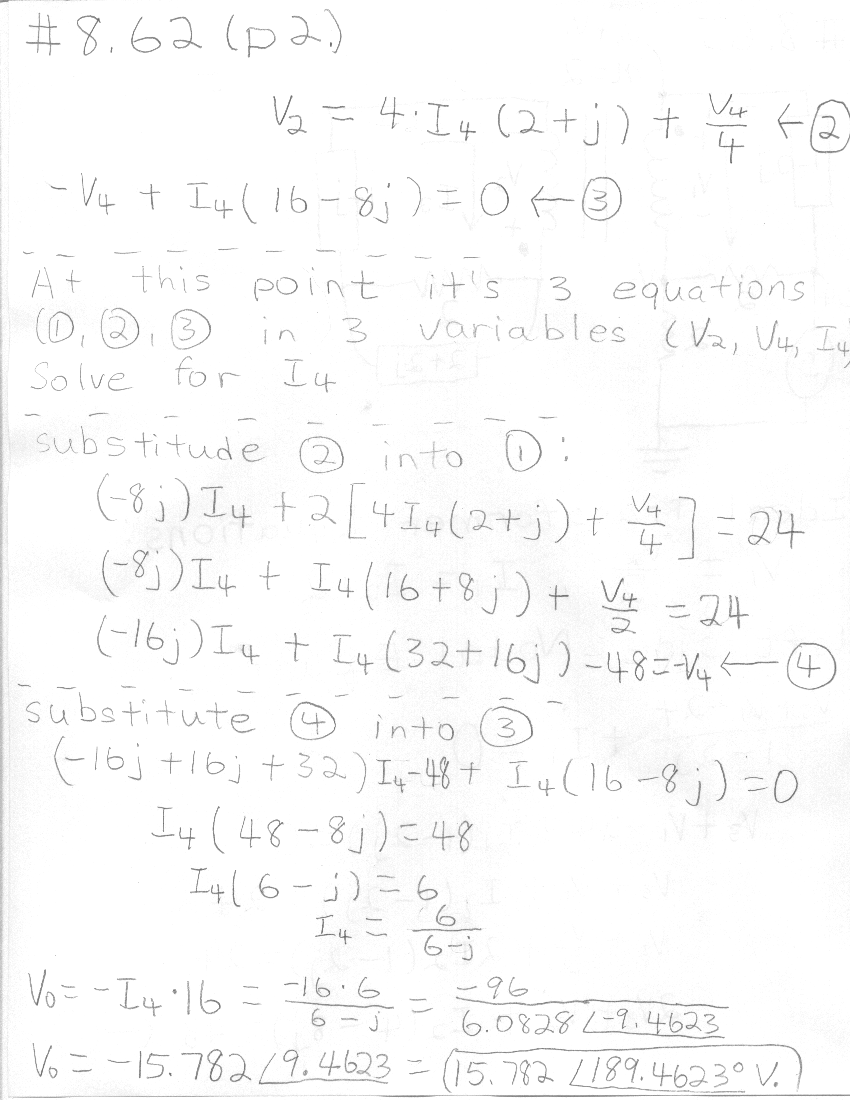 #8.62 (p2.)
V₂ = 4·I₄(2+j) + V₄/4 ←②
-V₄ + I₄(16-8j) = 0 ←③
At this point it's 3 equations
(①, ②, ③) in 3 variables (V₂, V₄, I₄)
Solve for I₄
substitude ② into ①:
(-8j)I₄ + 2[4I₄(2+j) + V₄/4] = 24
(-8j)I₄ + I₄(16+8j) + V₄/2 = 24
(-16j)I₄ + I₄(32+16j) -48=-V₄ ←④
substitute ④ into ③
(-16j+16j+32)I₄-48+ I₄(16-8j)=0
I₄(48-8j)=48
I₄(6-j)=6
I₄ = 6/(6-j)
V₀= -I₄·16 = -16·6/(6-j) = -96/(6.0828∠-9.4623)
V₀= -15.782∠9.4623 = (15.782 ∠189.4623° V.)